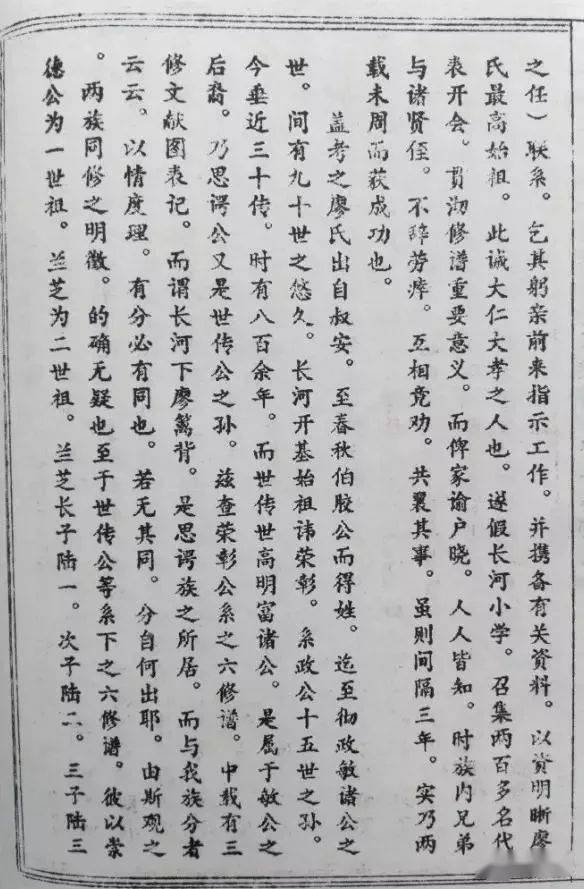 之任）联系。乞其躬亲前来指示工作。并携备有关资料。以资明晰廖
氏最高始祖。此诚大仁大孝之人也。遂假长河小学。召集两百多名代
表开会。贯彻修谱重要意义。而俾家谕户晓。人人皆知。时族内兄弟
与诸贤侄。不辞劳瘁。互相竞劝。共襄其事。虽则间隔三年。实乃两
载未周而获成功也。
盖考之廖氏出自叔安。至春秋伯胶公而得姓。迄至彻政敏诸公之
世。间有九十世之悠久。长河开基始祖讳荣彰。系政公十五世之孙。
今垂近三十传。时有八百余年。而世传世高明富诸公。是属于敏公之
后裔。乃思谔公又是世传公之孙。兹查荣彰公系之六修谱。中载有三
修文献图表记。而谓长河下廖篱背。是思谔族之所居。而与我族分者
云云。以情度理。有分必有同也。若无其同。分自何出耶。由斯观之
。两族同修之明徵。的确无疑也至于世传公等系下之六修谱。彼以崇
德公为一世祖。兰芝为二世祖。兰芝长子陆一。次子陆二。三子陆三